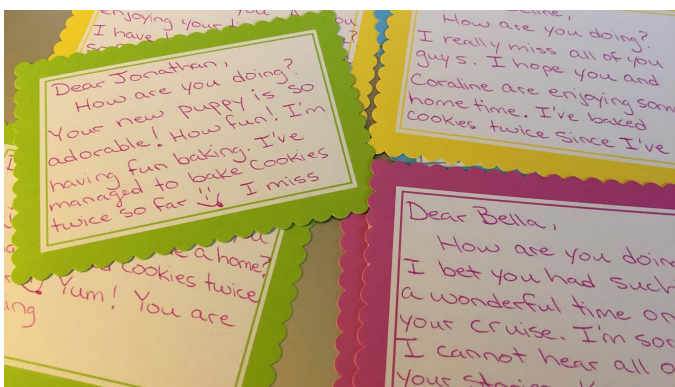 enjoying your
I have
Dear Jonathan,
How are you doing?
Your new puppy is so
adorable! How fun! I'm
having fun baking. I've
managed to bake cookies
twice so far I miss
How are you doing?
I really miss all of you
guys. I hope you and
Coraline are enjoying som
home time. I've baked
cookies twice since I've
a home?
cookies twice
Yum! You are
ing
Dear Bella,
How are you doin
I bet you had such
a wonderful time on
your cruise. I'm sor
I cannot hear all o
your